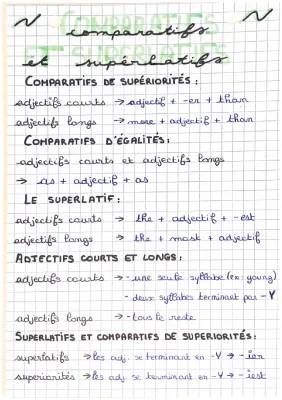 COMPARATIFS
ET SUPERLATIFS
comparatifs
et superlatifs
COMPARATIFS DE SUPÉRIORITÉS :
adjectifs courts → adjectif + -er + than
adjectifs longs → more + adjectif + than
COMPARATIFS D'ÉGALITÉS :
adjectifs courts et adjectifs longs
→ as + adjectif + as
LE SUPERLATIF :
adjectifs courts → the + adjectif + -est
adjectifs longs → the + most + adjectif
ADJECTIFS COURTS ET LONGS :
adjectifs courts → - une seule syllabe (ex : young)
- deux syllabes terminant par -Y
adjectifs longs → - tous le reste
SUPERLATIFS ET COMPARATIFS DE SUPERIORITÉS :
superlatifs → les adj. se terminant en -Y → -ier
superiorités → les adj se terminant en -Y → -iest